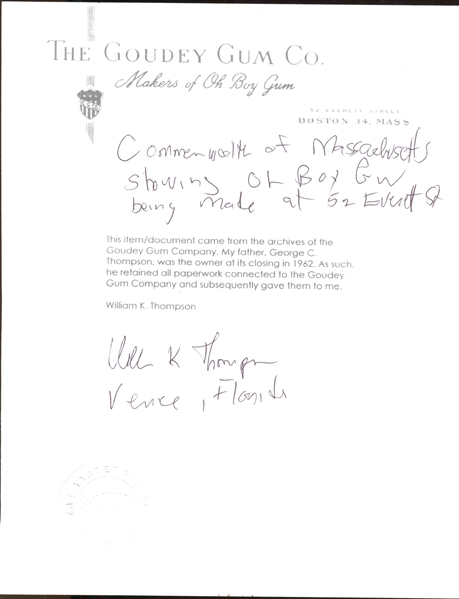 THE GOUDEY GUM CO.
Makers of Oh Boy Gum
52 EVERETT STREET
BOSTON 34, MASS
Commonwealth of Massachusetts
showing Oh Boy Gum
being made at 52 Everett St
This item/document came from the archives of the
Goudey Gum Company. My father, George C.
Thompson, was the owner at its closing in 1962. As such,
he retained all paperwork connected to the Goudey
Gum Company and subsequently gave them to me.
William K. Thompson
Will K Thompson
Venice, Florida